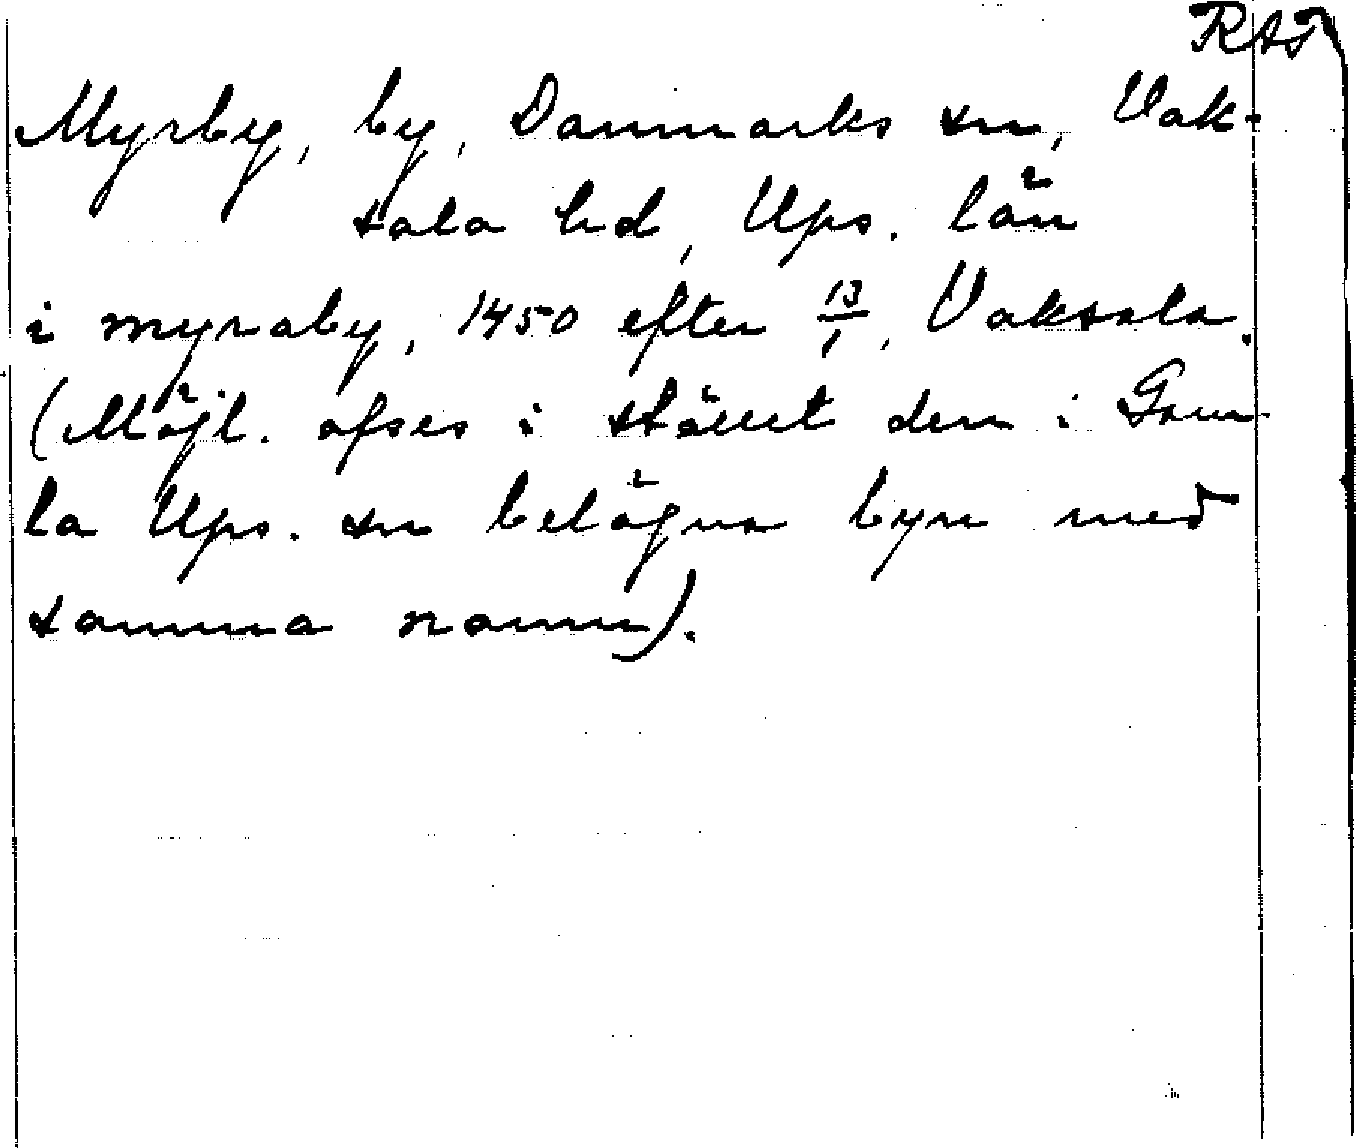 RAP
Myrby, by, Danmarks sn, Vak-
sala hd, Ups. län
i myraby, 1450 efter 13/1, Vaksala.
(Möjl. afses i stället den i Gam-
la Ups. sn belägna byn med
samma namn).